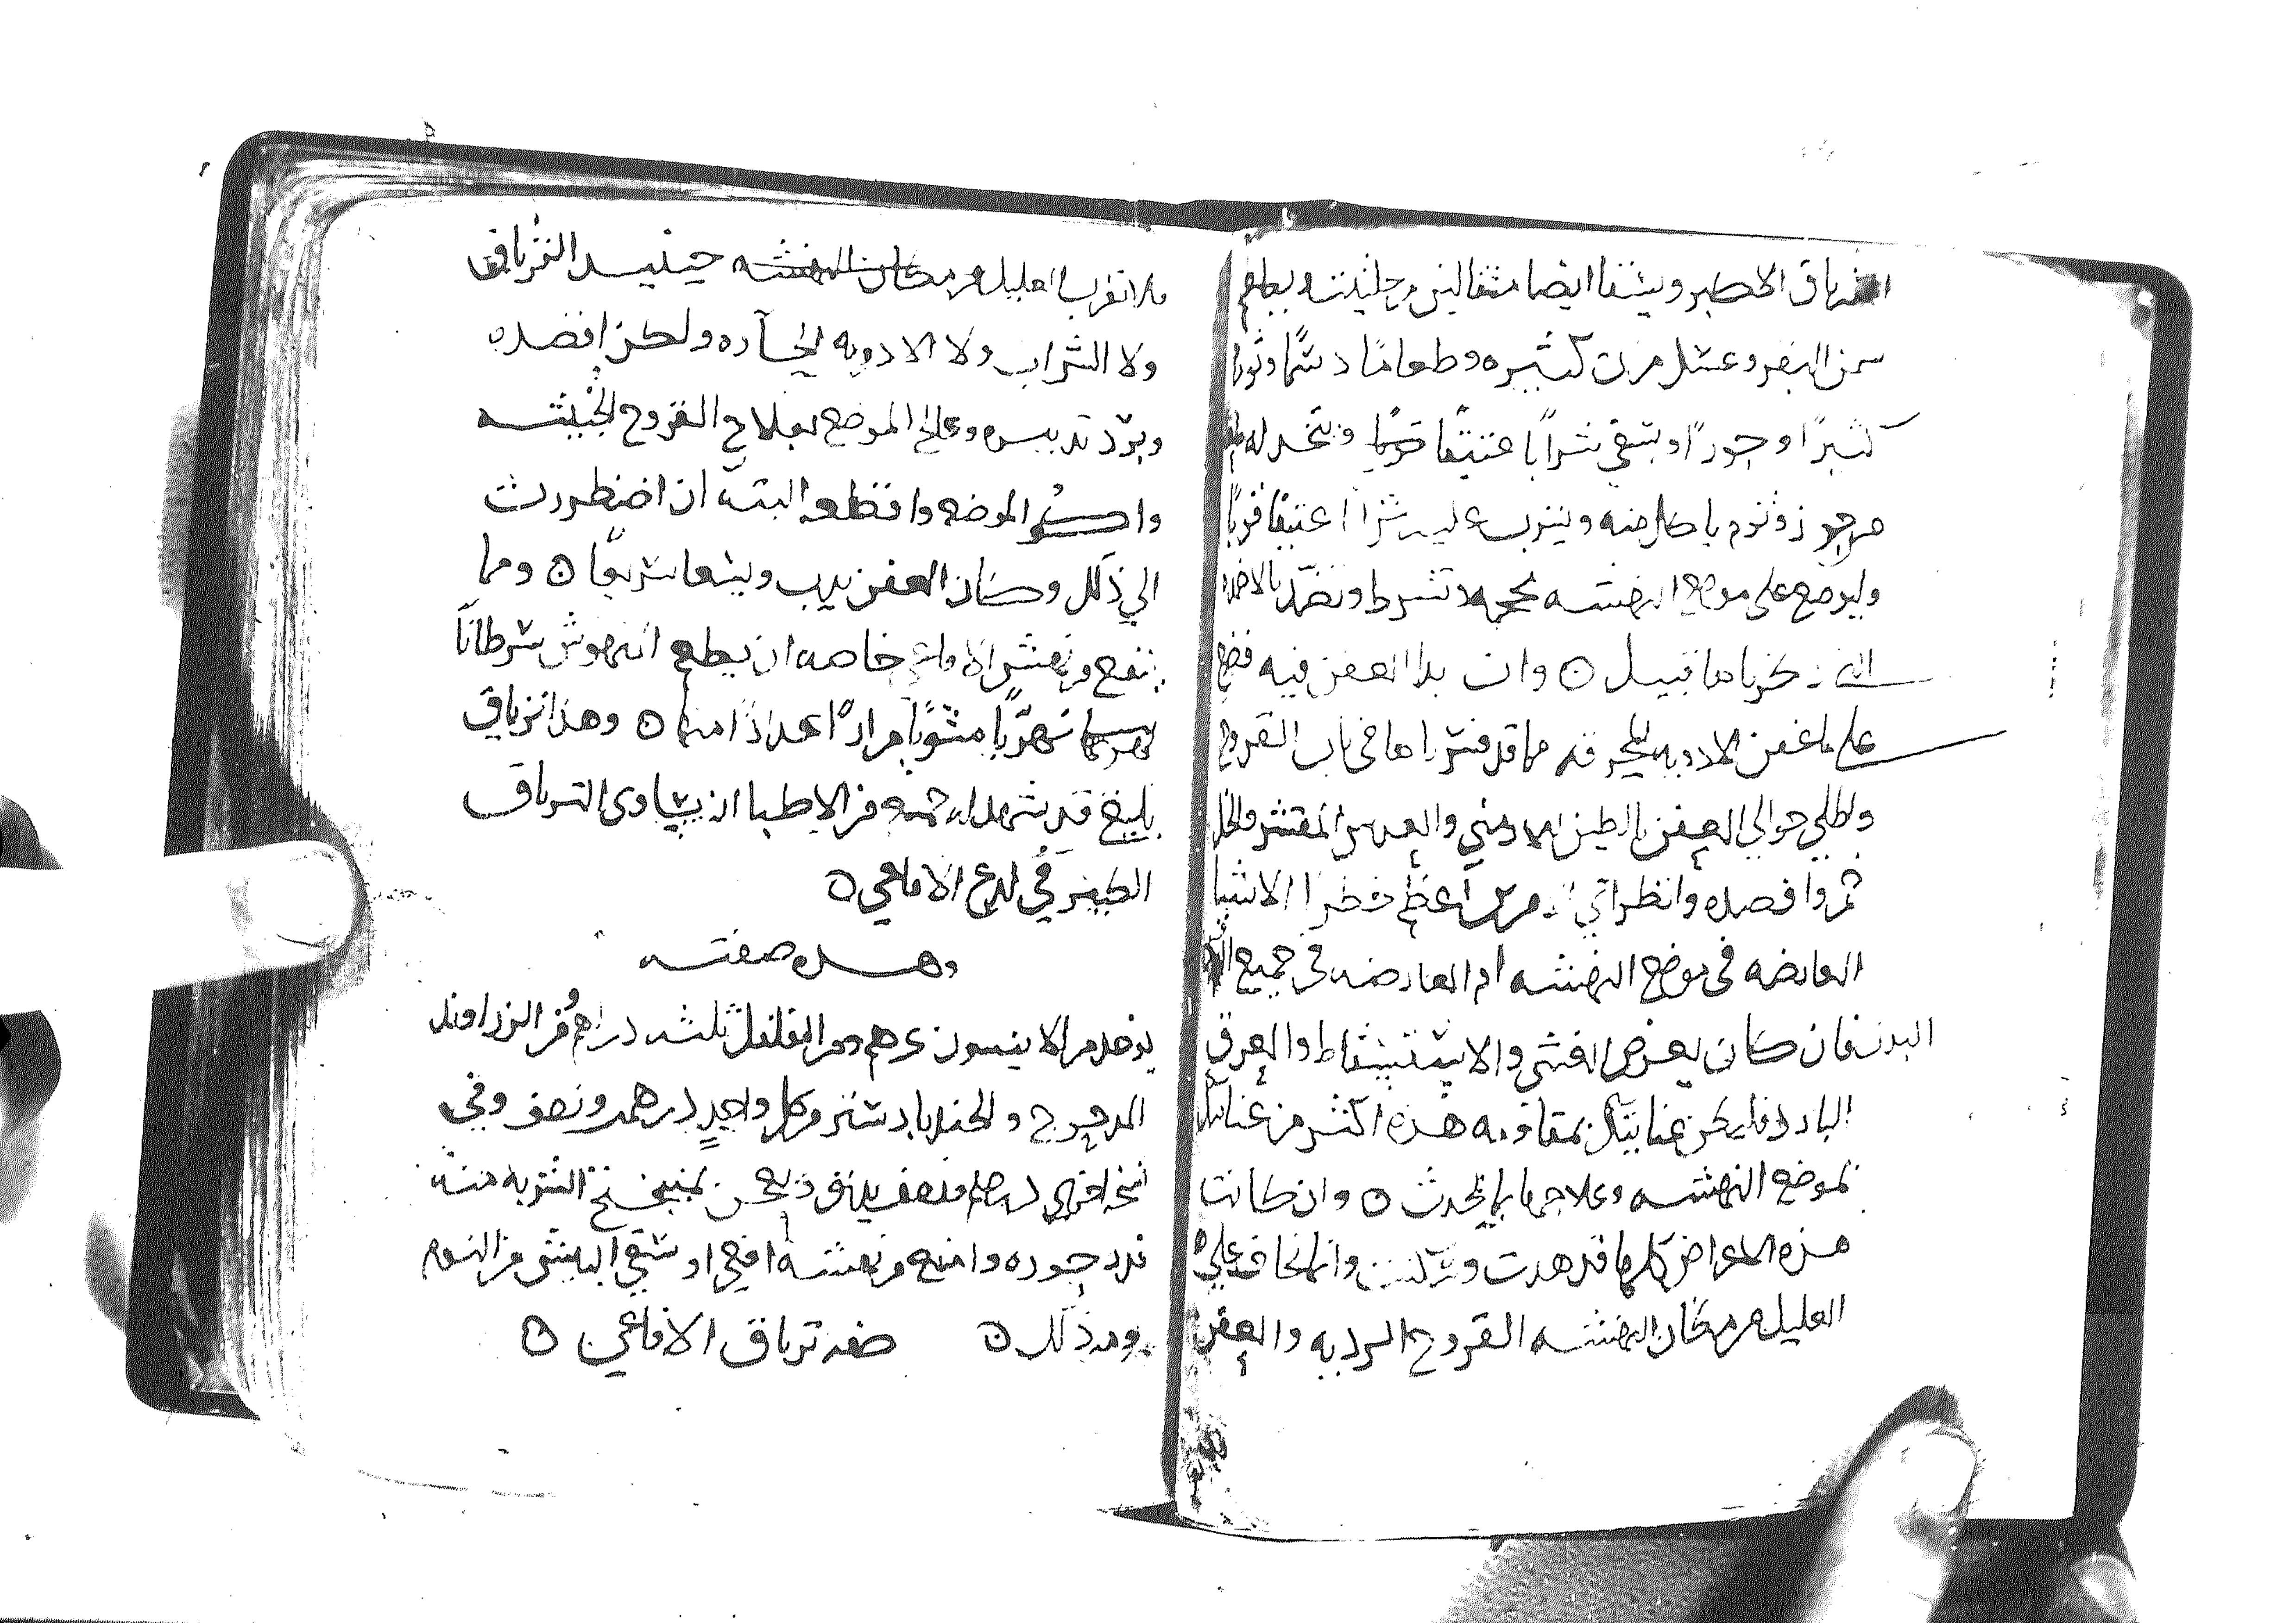 الترياق الاكبر ويسقا ايضا مثقالين من حلتيت ويطعم
سمن البقر وعسل مرت كثيره وطعاما دسما وثوما
كثيرًا وجوزًا ويسقى شرابًا عتيقا قويا ويتخذ له
من جوز وثوم ياكل منه ويشرب عليه شرابا عتيقا قويًا
وليوضع على موضع النهشه محجمه بلا شرط وتضمد بالاضمده
التي ذكرناها قبيل ۞ وان بدا العفن فيه فضع
على ما عفن الادويه المحرقه مما قد فسرناها في باب القروح
واطلي حوالي العفن بالطين الارمني والعدس المقشر والخل
ثم وافصده وانظر اي اعظم خطرا الاشيا
العارضه في موضع النهشه ام العارضه في جميع
البدن فان كان يعرض الغشى والاستسقاط والعرق
البارد فليكن عنايتك بمقاومه هذه اكثر من عنايتك
بموضع النهشه وعلاجها بما يحدث ۞ وان كانت
هذه الاعراض كلها قد هدت وسكنت وانما تخاف على
العليل من مكان النهشه القروح الرديه والعفن
فلا تقرب العليل من مكان النهشه حينيذ الترياق
ولا الشراب ولا الادويه الحاره ولكن افصده
وبرّد تدبيره وعالج الموضع بعلاج القروح الخبيثه
واكو الموضع واقطعه البته ان اضطررت
الي ذلك وكان العفن يدب ويسعا سريعًا ۞ ومما
ينفع من نهش الافاعي خاصه ان يطعم المنهوش سرطانًا
نهريًا مشويًا مرارًا اعدادًا منها ۞ وهذا ترياق
بليغ قد شهد له خمسه من الاطبا انه يساوي الترياق
الكبير في لدغ الافاعي ۞
وهذه صفته
يوخذ من الانيسون درهم ومن الفلفل ثلثه دراهم ومن الزراوند
المدحرج والجندبادستر من كل واحدٍ درهم ونصف وفي
نسخه اخري درهم ونصف يدق ويعجن بمبيختج الشربه منه
قدر جوزه وامنع من نهشه افعي او سقي البيش من النوم
بعد ذلك ۞ صفه ترياق الافاعي ۞